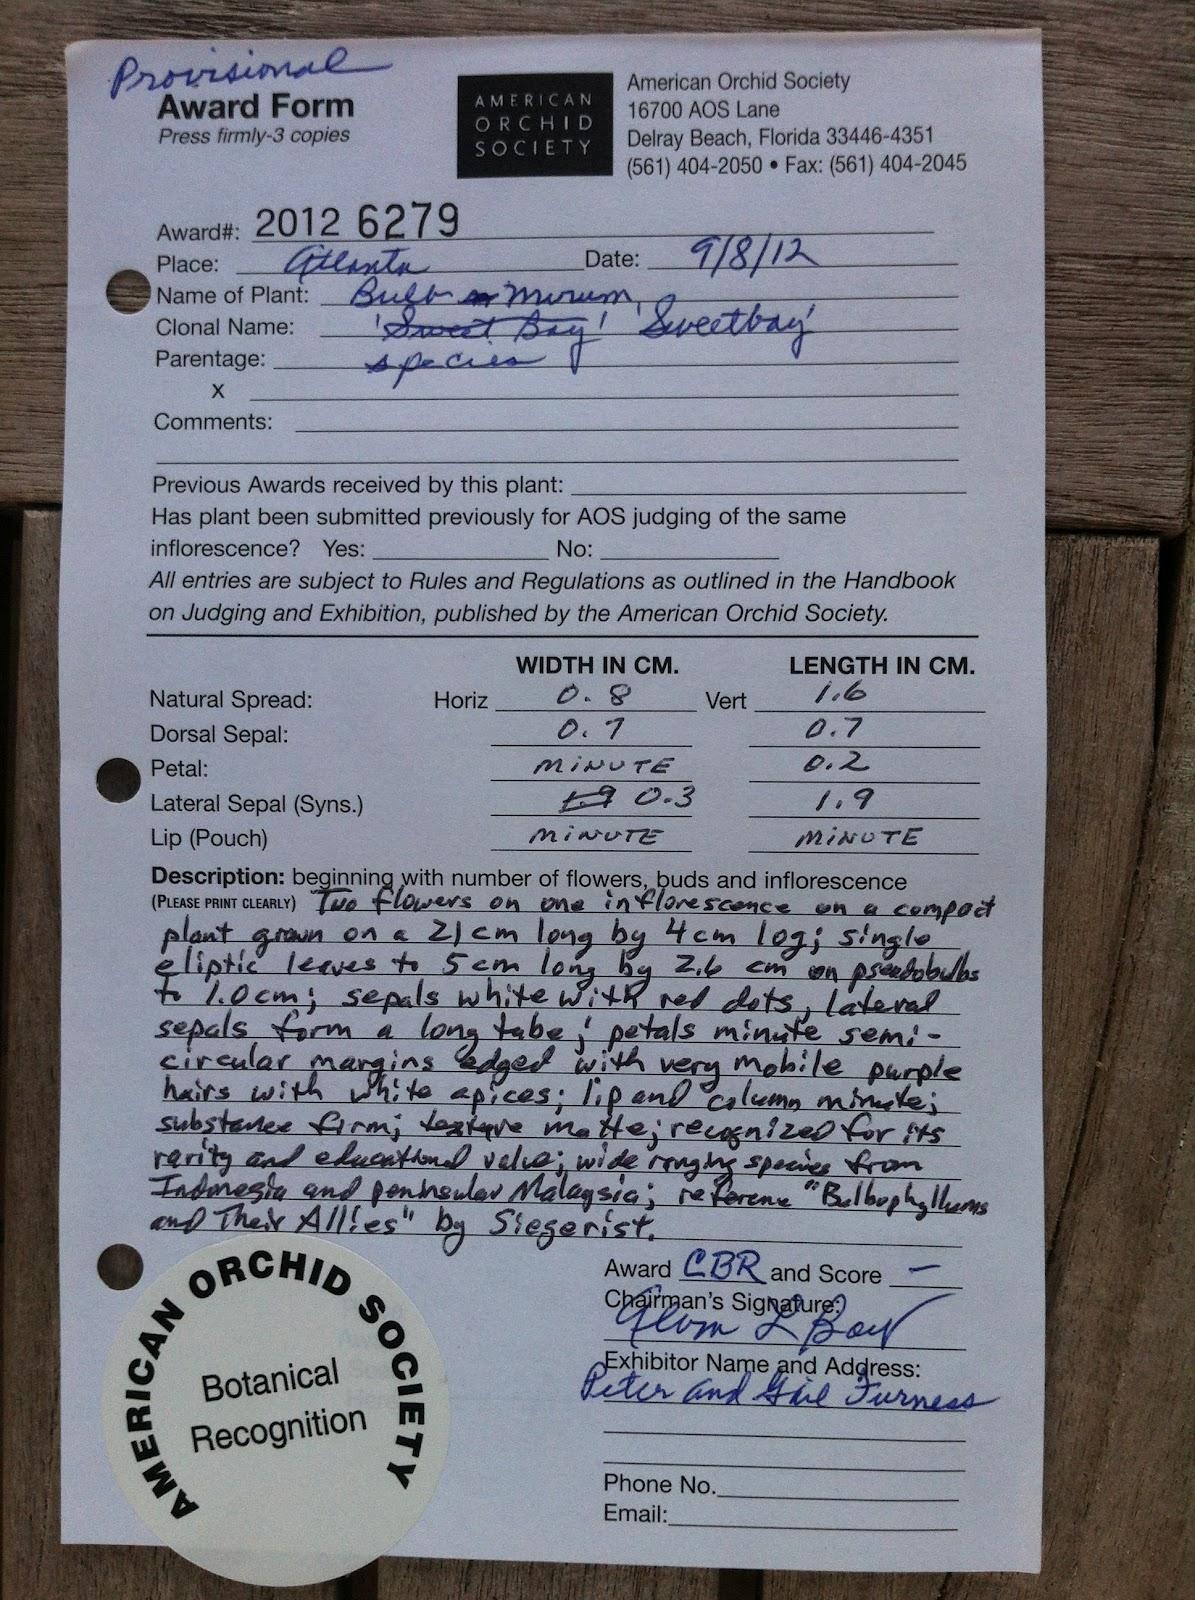 Provisional
Award Form
Press firmly-3 copies
AMERICAN
ORCHID
SOCIETY
American Orchid Society
16700 AOS Lane
Delray Beach, Florida 33446-4351
(561) 404-2050 • Fax: (561) 404-2045
Award#: 2012 6279
Place: Atlanta Date: 9/8/12
Name of Plant: Bulb Mirum,
Clonal Name: 'Sweet Bay' 'Sweetbay'
Parentage: species
X
Comments:
Previous Awards received by this plant:
Has plant been submitted previously for AOS judging of the same
inflorescence? Yes: No:
All entries are subject to Rules and Regulations as outlined in the Handbook
on Judging and Exhibition, published by the American Orchid Society.
WIDTH IN CM. LENGTH IN CM.
Natural Spread: Horiz 0.8 Vert 1.6
Dorsal Sepal: 0.7 0.7
Petal: MINUTE 0.2
Lateral Sepal (Syns.) 1.9 0.3 1.9
Lip (Pouch) MINUTE MINUTE
Description: beginning with number of flowers, buds and inflorescence
(PLEASE PRINT CLEARLY) Two flowers on one inflorescence on a compact
plant grown on a 21cm long by 4cm log; single
eliptic leaves to 5cm long by 2.6 cm on pseudobulbs
to 1.0cm; sepals white with red dots, lateral
sepals form a long tube; petals minute semi-
circular margins edged with very mobile purple
hairs with white apices; lip and column minute;
substance firm; texture matte; recognized for its
rarity and educational value; wide ranging species from
Indonesia and peninsular Malaysia; reference "Bulbophyllums
and Their Allies" by Siegerist.
Award CBR and Score –
Chairman's Signature:
Exhibitor Name and Address:
Peter and Gail Furness
Phone No.
Email:
AMERICAN ORCHID SOCIETY
Botanical
Recognition